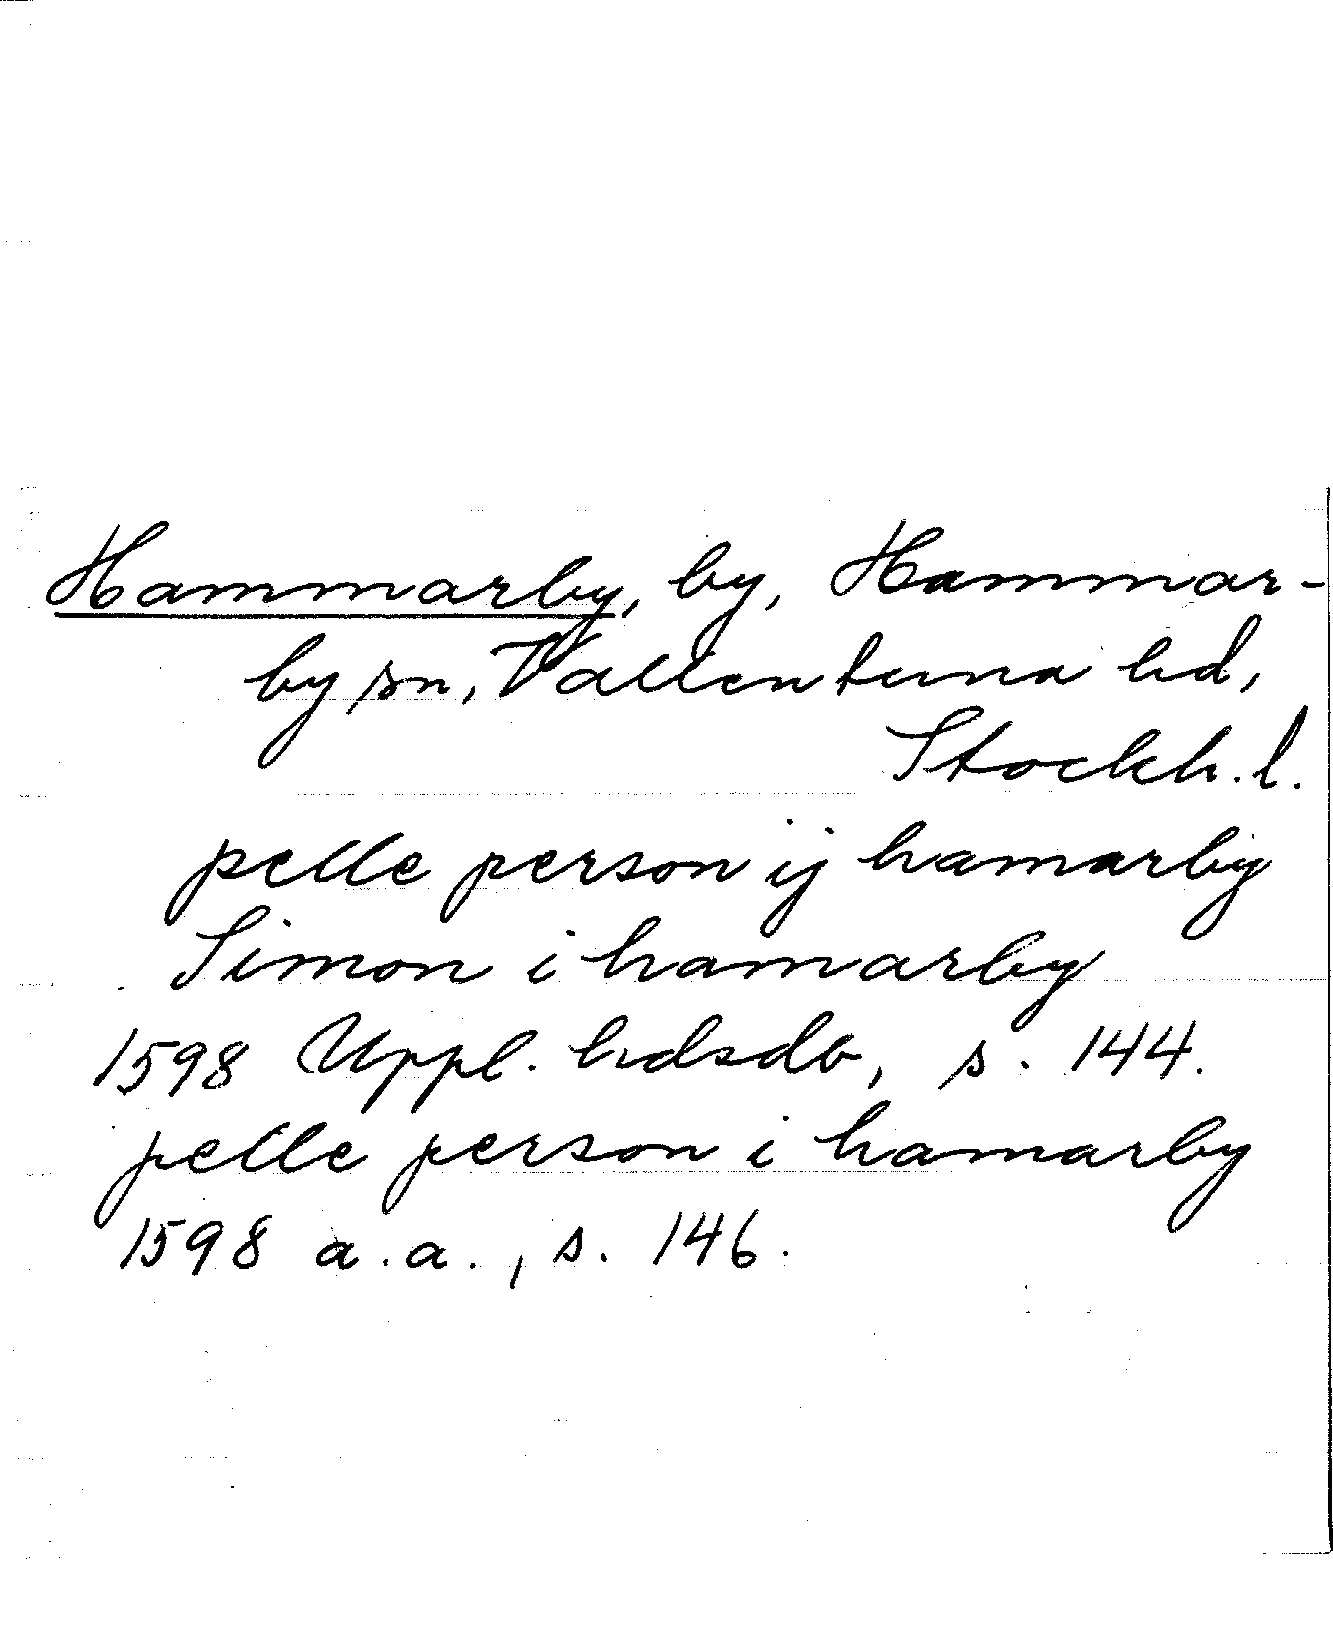 Hammarby, by, Hammar-
by sn, Vallentuna hd,
Stockh. l.
pelle person ij hamarby
Simon i hamarby
1598 Uppl. hdsdb, s. 144.
pelle person i hamarby
1598 a.a., s. 146.